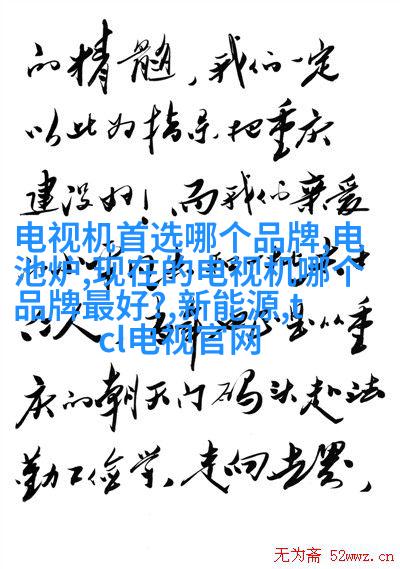 的精髓，我们一定
以此为指导把重庆
建设好！而我们亲爱
电视机首选哪个品牌,电
池炉,现在的电视机哪个
品牌最好?,新能源,t
cl电视官网
是从重
庆的朝天门码头赴法
勤工俭学，走向世界，
无为斋 52wwz.cn